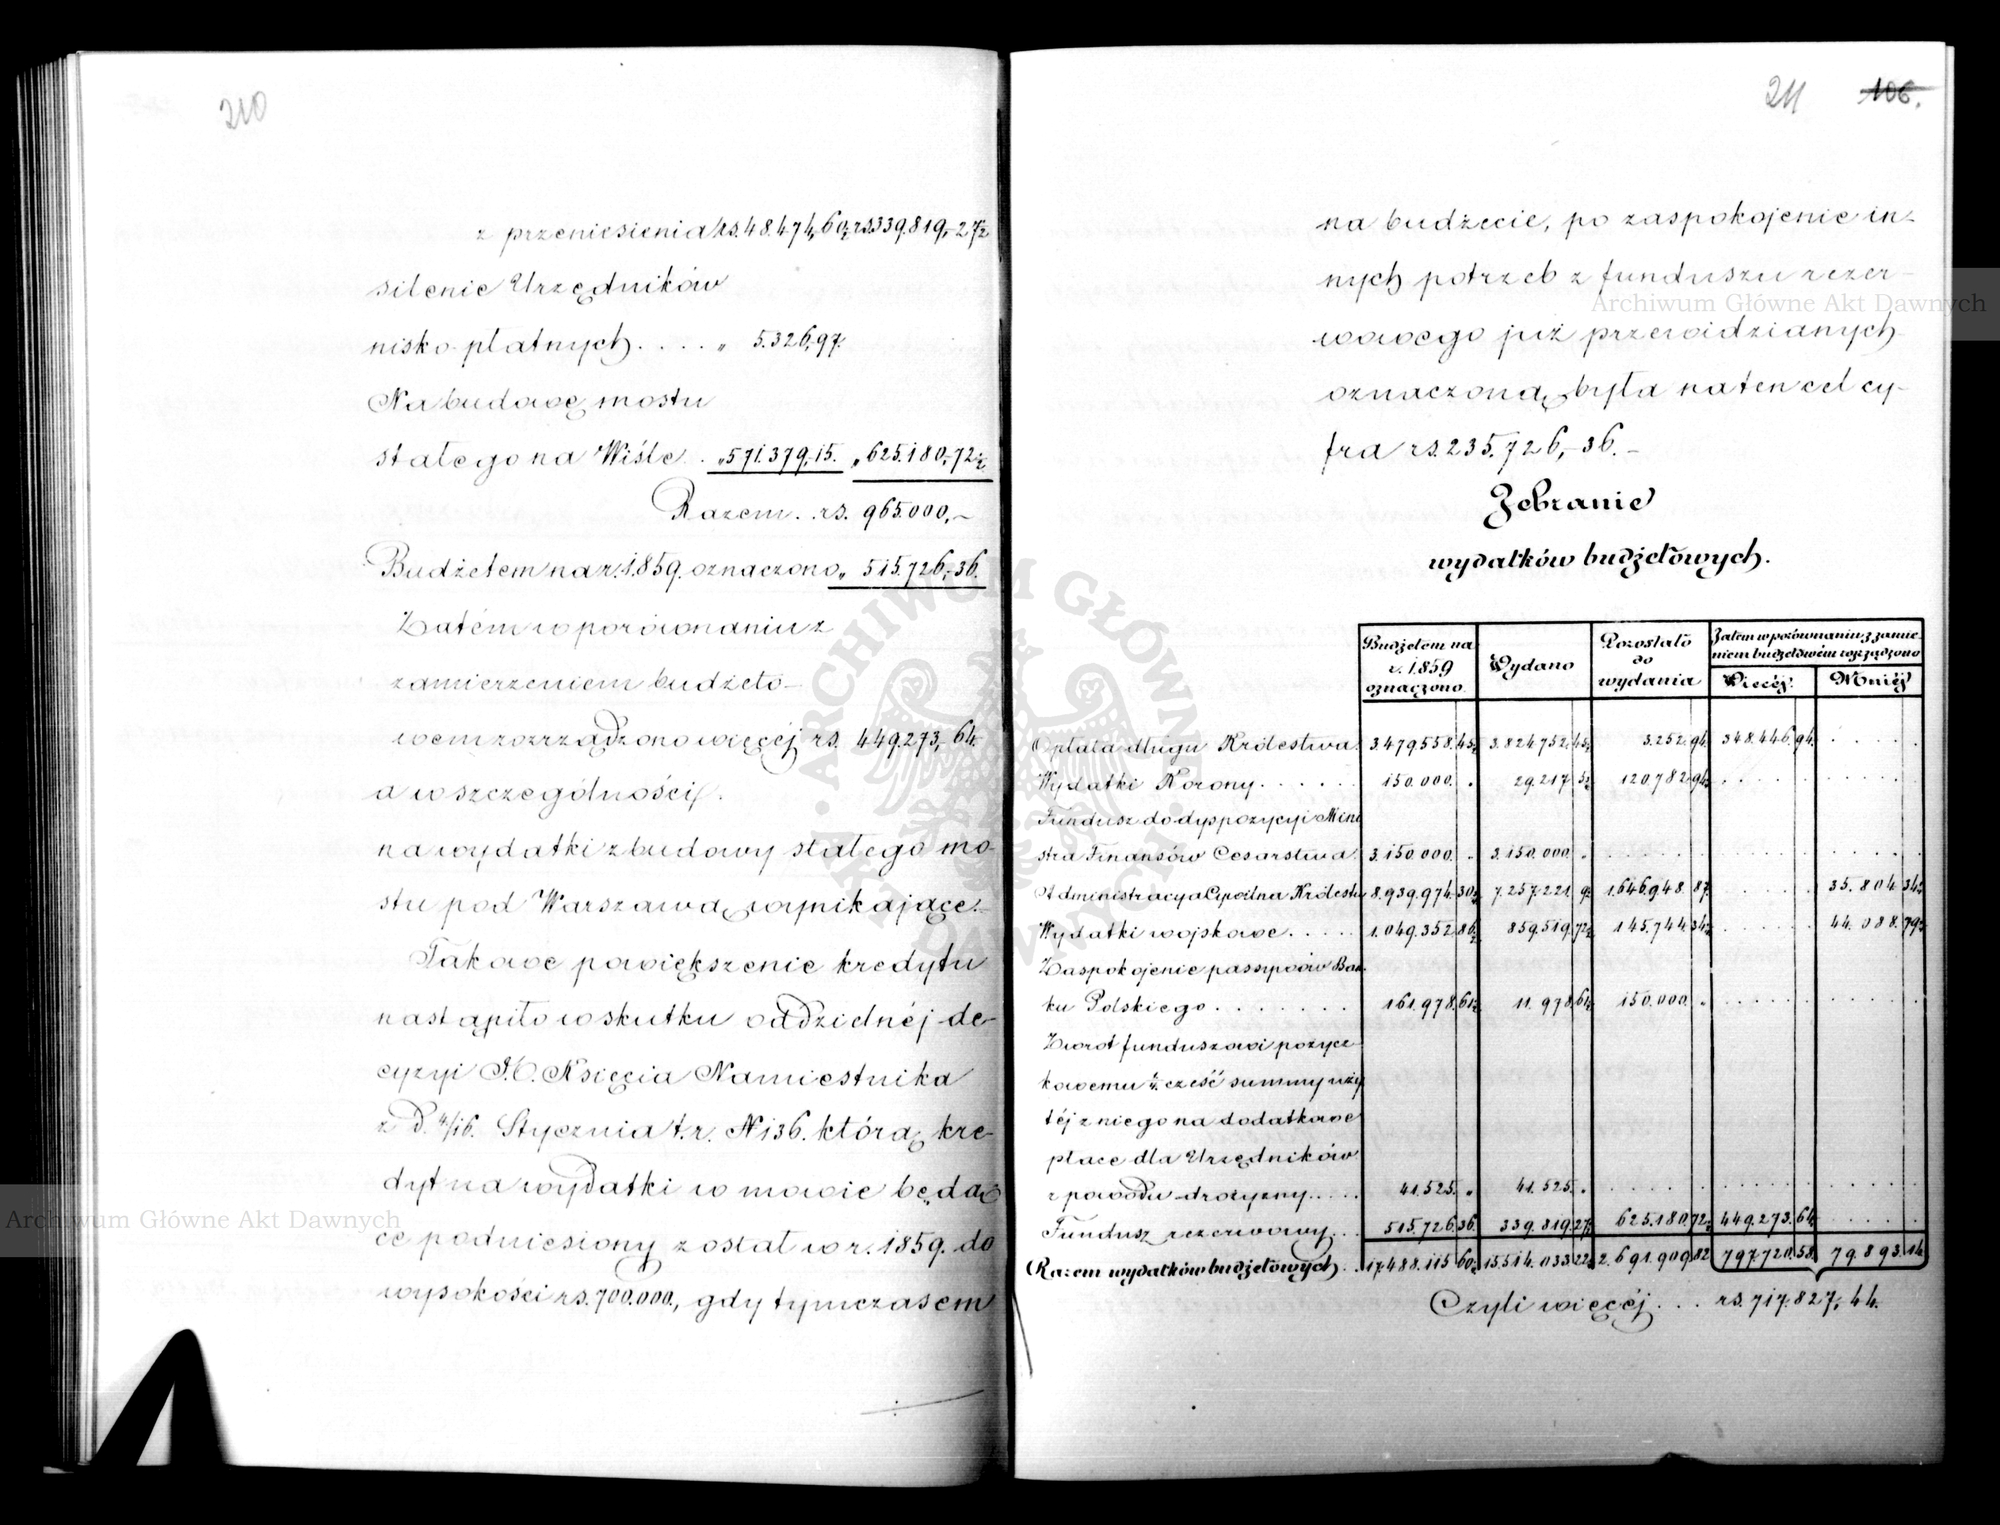 210
z przeniesienia rs. 48.474,60½ rs. 339.819,-27½
silenie Urzędników
nisko płatnych . . . . „ 5.326,97.
Na budowę mostu
stałego na Wiśle . . „ 571.379,-15. „ 625.180,-72½
Razem . rs. 965.000,-
Budżetem na r. 1859. oznaczono „ 515.726,-36.
Zatém w porównaniu z
zamierzeniem budżeto-
wem rozrządzono więcej rs. 449.273,-64.
a w szczególności.
na wydatki z budowy stałego mo-
stu pod Warszawą wynikające.-
Takowe powiększenie kredytu
nastąpiło w skutku oddzielnéj de-
cyzyi J.O. Księcia Namiestnika
z d. 4/16. Stycznia t.r. N 136. którą kre-
dyt na wydatki w mowie będą-
ce podniesiony został w r. 1859. do
wysokości rs. 700.000., gdy tymczasem
211 106.
na budżecie, po zaspokojenie in-
nych potrzeb z funduszu rezer-
wowego już przewidzianych
oznaczoną była na ten cel cy-
fra rs. 235.726,-36.-
Zebranie
wydatków budżetowych.
Budżetem na r. 1859 oznaczono Wydano Pozostało do wydania Zatem w porównaniu z zamierzeniem budżetowém rozrządzono
Więcéj. Mniéj
Opłata długu Królestwa. 3.479.558.45½ 3.824.752.45½ 3.252.94. 348.446.94. . . . .
Wydatki Korony . . . . . . 150.000. „ 29.217.5½ 120.782.94½ . . . .
Fundusz do dyspozycyi Mini
stra Finansów Cesarstwa. 3.150.000. „ 3.150.000. „ . . . .
Administracya Cywilna Królestw 8.939.974.30½ 7.257.221.9½ 1.646.948.87. . . . . 35.804.34½
Wydatki wojskowe . . . . 1.049.352.86½ 859.519.72½ 145.744.34½ . . . . 44.088.79½
Zaspokojenie passywów Ban.
ku Polskiego . . . . . . . . 161.978.61½ 11.978.61½ 150.000. „ . . . .
Zwrot funduszowi pożycz-
kowemu cześć summy uży
téj z niego na dodatkowe
płace dla Urzędników
z powodu drożyzny . . . . 41.525. „ 41.525. „ . . . .
Fundusz rezerwowy . . . 515.726.36. 339.819.27½ 625.180.72½ 449.273.64. . . . .
Razem wydatków budżetowych . . 17.488.115.60½ 15.514.033.22½ 2.691.909.82 797.720.58. 79.893.14.
Czyli więcéj . . . rs. 717.827,-44.
Archiwum Główne Akt Dawnych
Archiwum Główne Akt Dawnych
ARCHIWUM GŁÓWNE AKT DAWNYCH